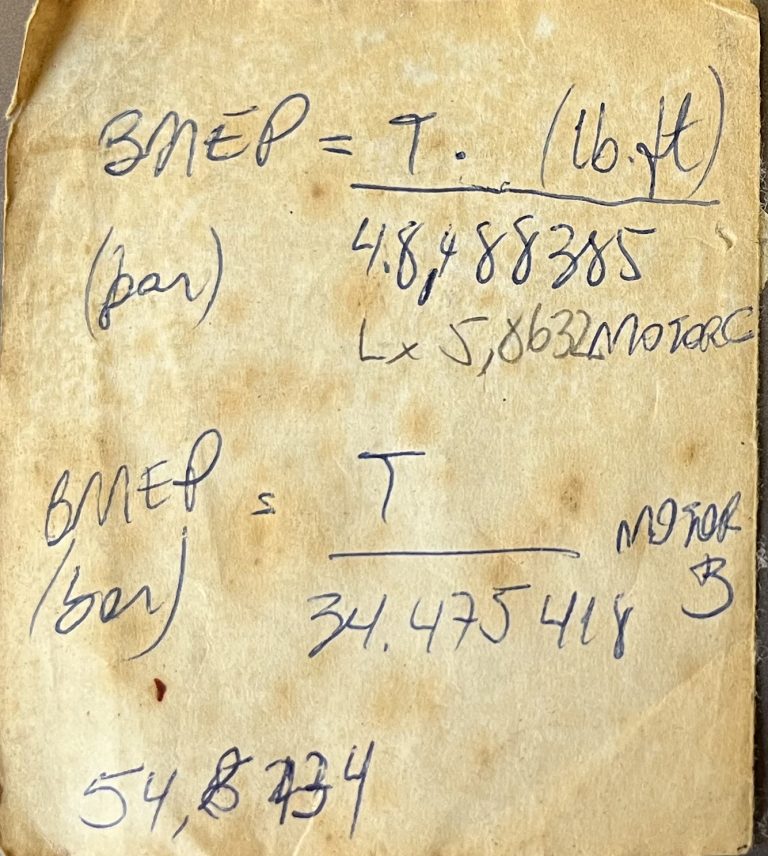 BMEP = T. (lb.ft)
(bar) 4.8,488385
L x 5,8632 MOTOR C
BMEP = T
(bar) 34.475418 MOTOR B
54,